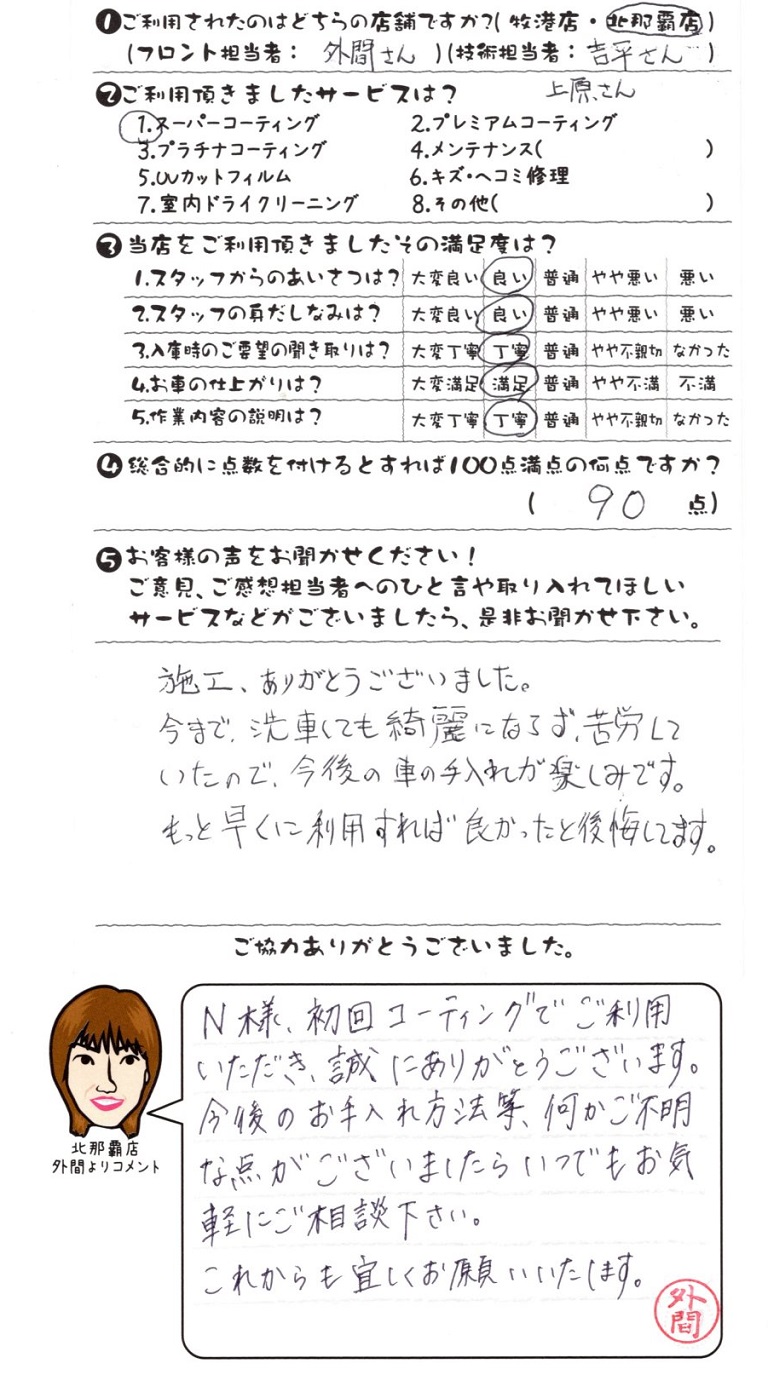 ❶ご利用されたのはどちらの店舗ですか?(牧港店・北那覇店)
(フロント担当者: 外間さん )(技術担当者: 吉平さん )
上原さん
❷ご利用頂きましたサービスは?
1.スーパーコーティング 2.プレミアムコーティング
3.プラチナコーティング 4.メンテナンス( )
5.UVカットフィルム 6.キズ・ヘコミ修理
7.室内ドライクリーニング 8.その他( )
❸当店をご利用頂きましたその満足度は?
1.スタッフからのあいさつは? 大変良い 良い 普通 やや悪い 悪い
2.スタッフの身だしなみは? 大変良い 良い 普通 やや悪い 悪い
3.入庫時のご要望の聞き取りは? 大変丁寧 丁寧 普通 やや不親切 なかった
4.お車の仕上がりは? 大変満足 満足 普通 やや不満 不満
5.作業内容の説明は? 大変丁寧 丁寧 普通 やや不親切 なかった
❹総合的に点数を付けるとすれば100点満点の何点ですか?
( 90 点)
❺お客様の声をお聞かせください!
ご意見、ご感想担当者へのひと言や取り入れてほしい
サービスなどがございましたら、是非お聞かせ下さい。
施工、ありがとうございました。
今まで、洗車しても綺麗にならず、苦労して
いたので、今後の車の手入れが楽しみです。
もっと早くに利用すれば良かったと後悔してます。
ご協力ありがとうございました。
N様、初回コーティングでご利用
いただき、誠にありがとうございます。
今後のお手入れ方法等、何かご不明
な点がございましたらいつでもお気
軽にご相談下さい。
これからも宜しくお願いいたします。
外間
北那覇店
外間よりコメント